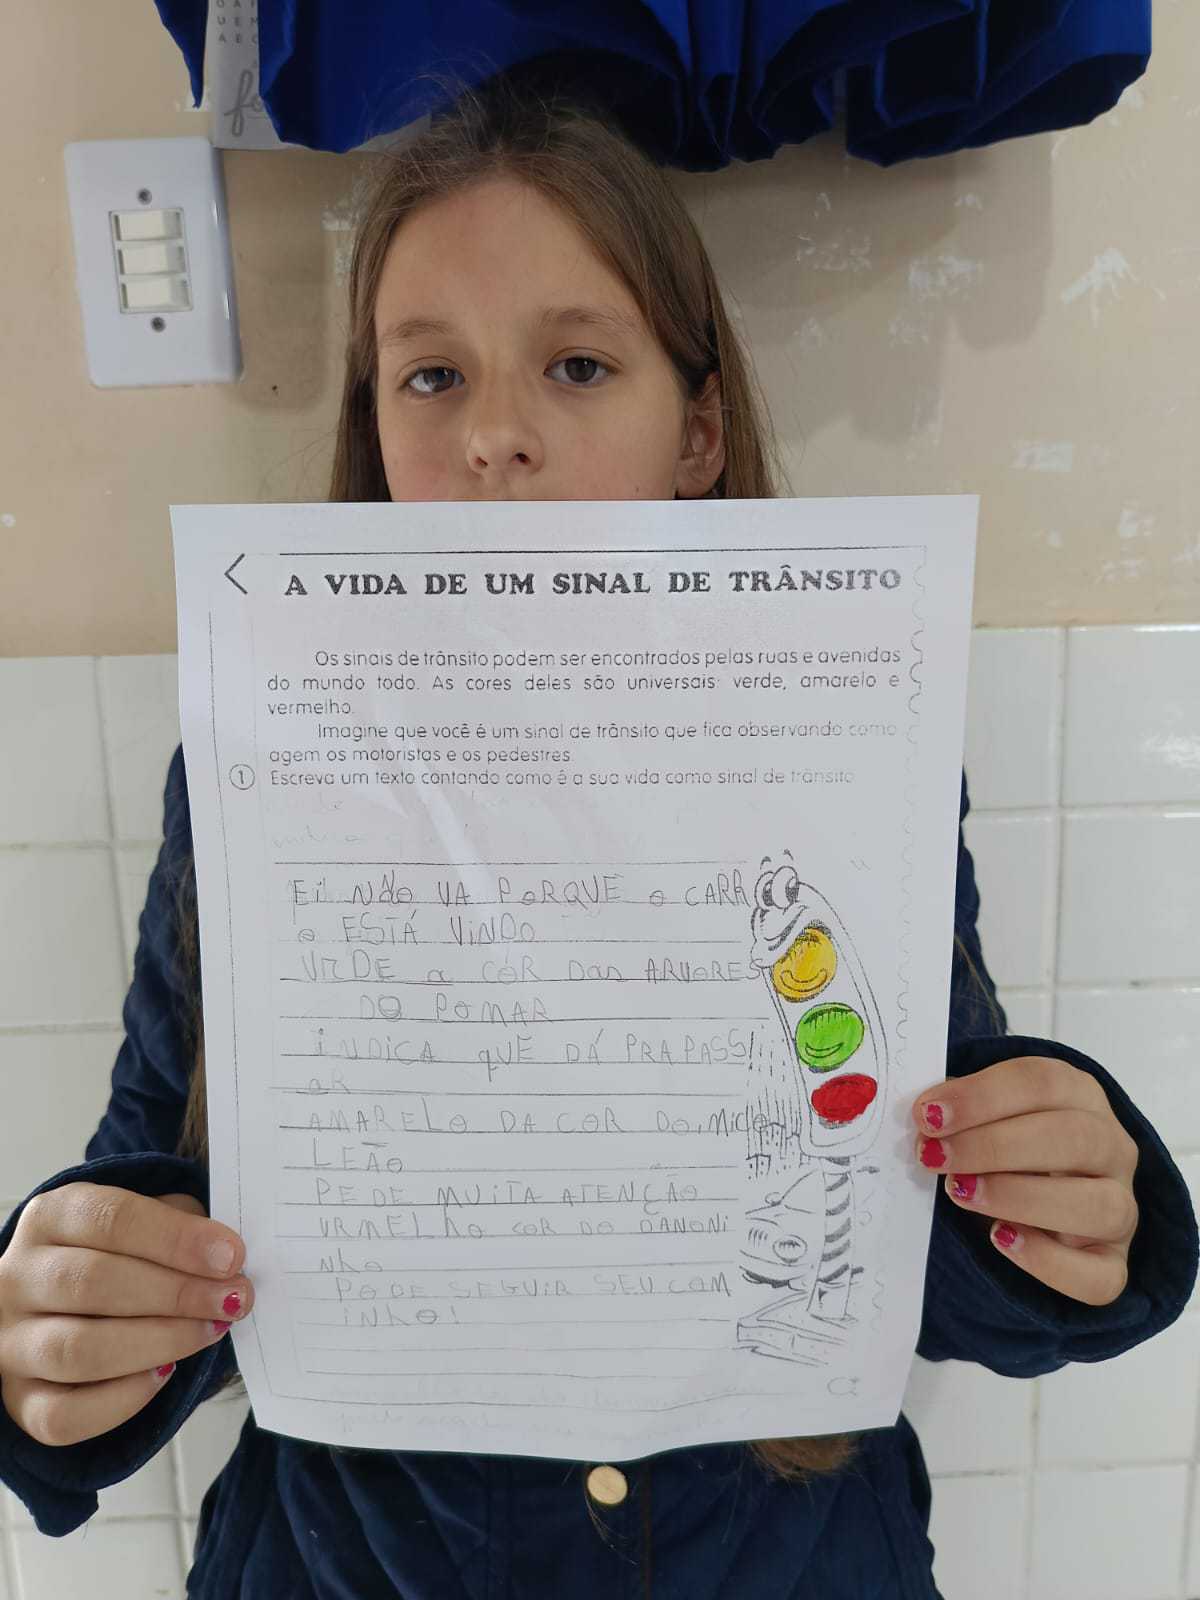 A VIDA DE UM SINAL DE TRÂNSITO
Os sinais de trânsito podem ser encontrados pelas ruas e avenidas
do mundo todo. As cores deles são universais: verde, amarelo e
vermelho.
Imagine que você é um sinal de trânsito que fica observando como
agem os motoristas e os pedestres.
1 Escreva um texto contando como é a sua vida como sinal de trânsito
Ei NÃo VA PoRQUE o CARR
o ESTÁ ViNDO
VRDE a COR Das ARVoRES
DO POMAR
iNDiCA qUE DÁ PRA PASS
aR
AMARELO DA COR DO MiCo
LEÃo
PEDE MUiTA ATENÇÃO
VRMELhO COR DO DANONi
Nho
PODE SEGUiR SEU CAM
iNhO!